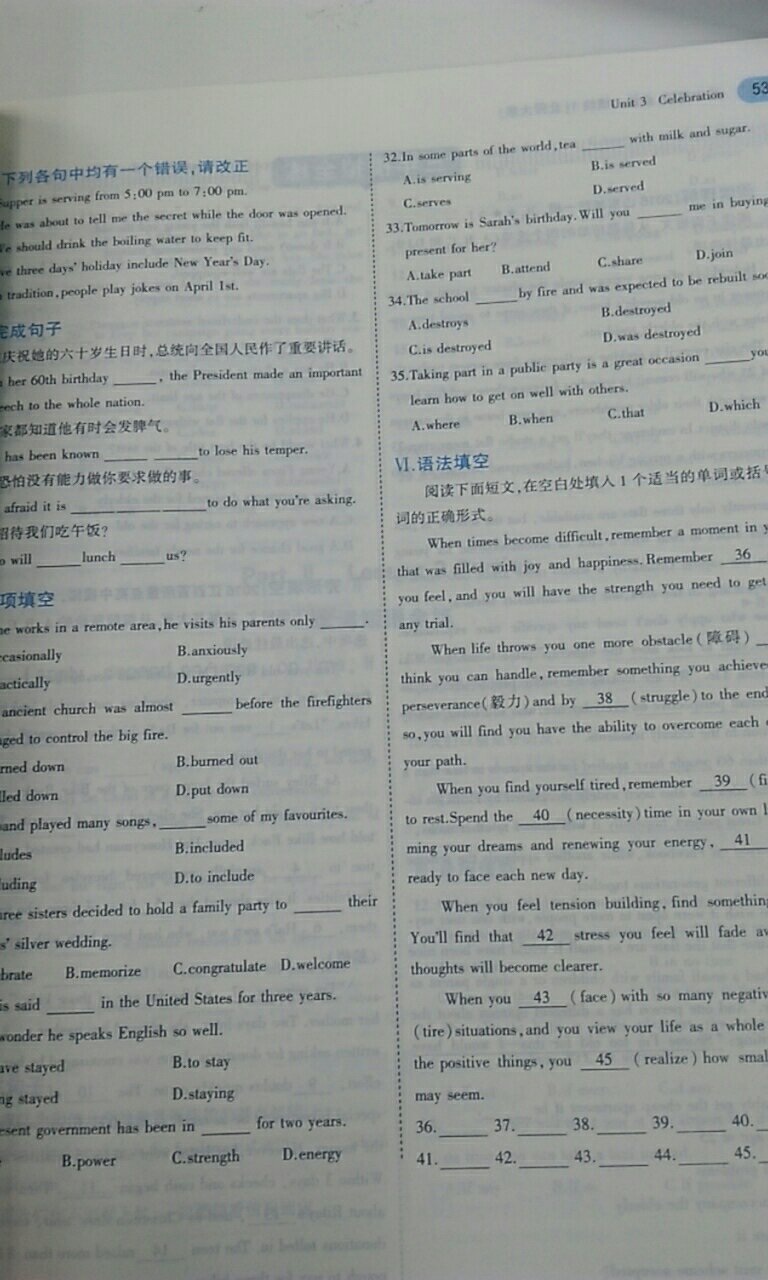 Unit 3 Celebration
53
下列各句中均有一个错误,请改正
Supper is serving from 5:00 pm to 7:00 pm.
He was about to tell me the secret while the door was opened.
We should drink the boiling water to keep fit.
three days' holiday include New Year's Day.
tradition,people play jokes on April 1st.
完成句子
庆祝她的六十岁生日时,总统向全国人民作了重要讲话。
her 60th birthday ______, the President made an important
to the whole nation.
家都知道他有时会发脾气。
has been known ______ ______to lose his temper.
恐怕没有能力做你要求做的事。
afraid it is ______ ______ ______to do what you're asking.
招待我们吃午饭?
will ______lunch ______us?
项填空
works in a remote area,he visits his parents only ______.
B.anxiously
D.urgently
ancient church was almost ______ before the firefighters
to control the big fire.
down
B.burned out
down
D.put down
played many songs,______some of my favourites.
B.included
D.to include
sisters decided to hold a family party to ______ their
silver wedding.
B.memorize C.congratulate D.welcome
is said ______ in the United States for three years.
wonder he speaks English so well.
stayed
B.to stay
stayed
D.staying
government has been in ______ for two years.
B.power C.strength D.energy
32.In some parts of the world,tea ______ with milk and sugar.
A.is serving B.is served
C.serves D.served
33.Tomorrow is Sarah's birthday.Will you ______ me in buying
present for her?
A.take part B.attend C.share D.join
34.The school ______by fire and was expected to be rebuilt
A.destroys B.destroyed
C.is destroyed D.was destroyed
35.Taking part in a public party is a great occasion ______
learn how to get on well with others.
A.where B.when C.that D.which
Ⅵ.语法填空
阅读下面短文,在空白处填入1个适当的单词或括
词的正确形式。
When times become difficult,remember a moment in
that was filled with joy and happiness.Remember 36
you feel,and you will have the strength you need to get
any trial.
When life throws you one more obstacle(障碍)
think you can handle,remember something you
perseverance(毅力)and by 38 (struggle)to the end
so,you will find you have the ability to overcome each
your path.
When you find yourself tired,remember 39
to rest.Spend the 40 (necessity)time in your own
ming your dreams and renewing your energy, 41
ready to face each new day.
When you feel tension building,find
You'll find that 42 stress you feel will fade
thoughts will become clearer.
When you 43 (face)with so many
(tire)situations,and you view your life as a whole
the positive things,you 45 (realize)how
may seem.
36.______ 37.______ 38.______ 39.______ 40.
41.______ 42.______ 43.______ 44.______ 45.